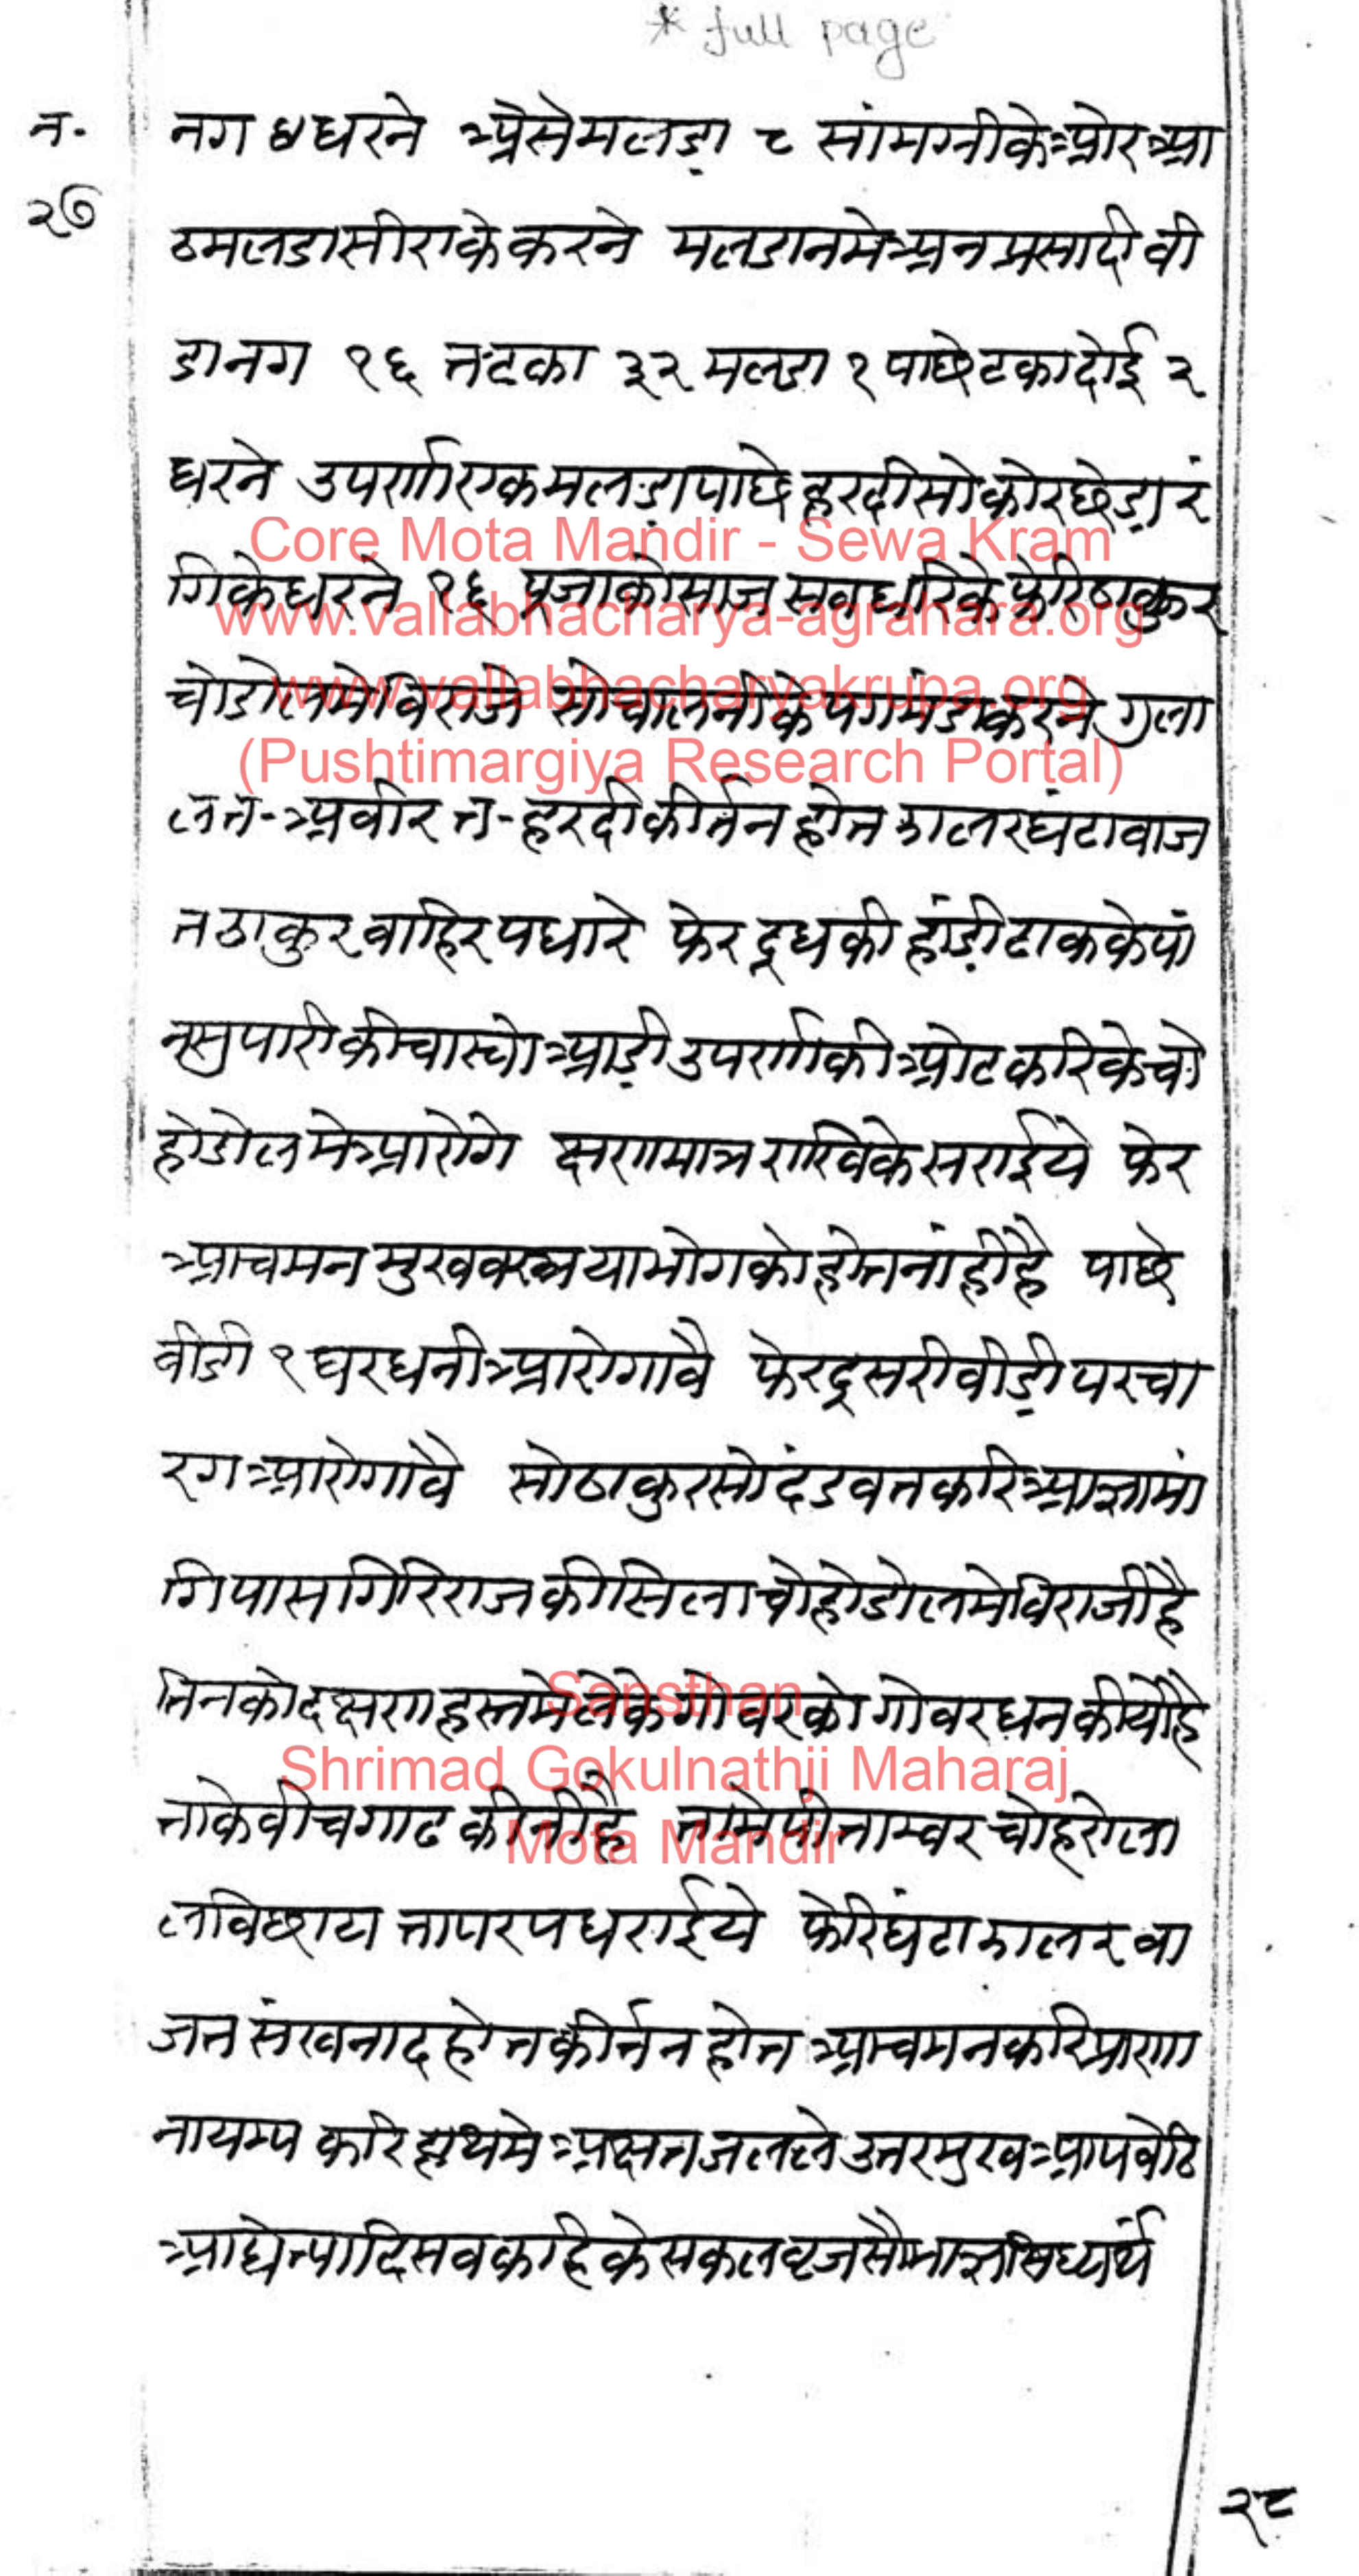 * full page
न. नग ४ धरने अेसे मलडा ८ सांमग्री के ओर आ
२७ ठ मलडा सीरा के करने मलडान मे अन प्रसादी वी
डा नग १६ त टका ३२ मलडा १ पाछे टका दोई २
धरने उपर्णा एक मलडा पाछे हरदी सो कोर छेडा रं
गि के धरने १६ पूजा को साज सब धरि के फेरि ठाकुर
चोडोल मे विराजे सो पालनी के पगमंडा करने गुला
ल त. अबीर त. हरदी कीर्तन होत झालर घंटा वाज
त ठाकुर वाहिर पधारे फेर दूध की हांडी ढाक के पां
न सुपारी की चास्यो आडी उपर्णा की ओट करि के चो
होडोल मे आरोगे क्षण मात्र राखि के सराईये फेर
आचमन मुखवस्त्र या भोग को होत नांही है पाछे
वीडी १ घरधनी आरोगावै फेर दूसरी वीडी परचा
रग आरोगावै सो ठाकुर सो दंडवत करि आज्ञा मां
गि पास गिरिराज की सिला चोहोडोल मे विराजी है
तिन को दक्षण हस्त मे लेके गोवर को गोवरधन कीयो है
ता के वीच गाढ कीनी है ता मे पीताम्वर चोहरो ला
ल विछाय ता पर पधराईये फेरि घंटा झालर वा
जत संखनाद होत कीर्तन होत आचमन करि प्राणा
नायम्य करि हाथ मे अक्षत जल ले उत्तर मुख आप वेठि
आद्येत्यादि सव कहि के सकल व्रज सौभाग्य सिध्यर्थे
२८
Core Mota Mandir - Sewa Kram
www.vallabhacharya-agrahara.org
www.vallabhacharyakrupa.org
(Pushtimargiya Research Portal)
Sansthan
Shrimad Gokulnathji Maharaj
Mota Mandir